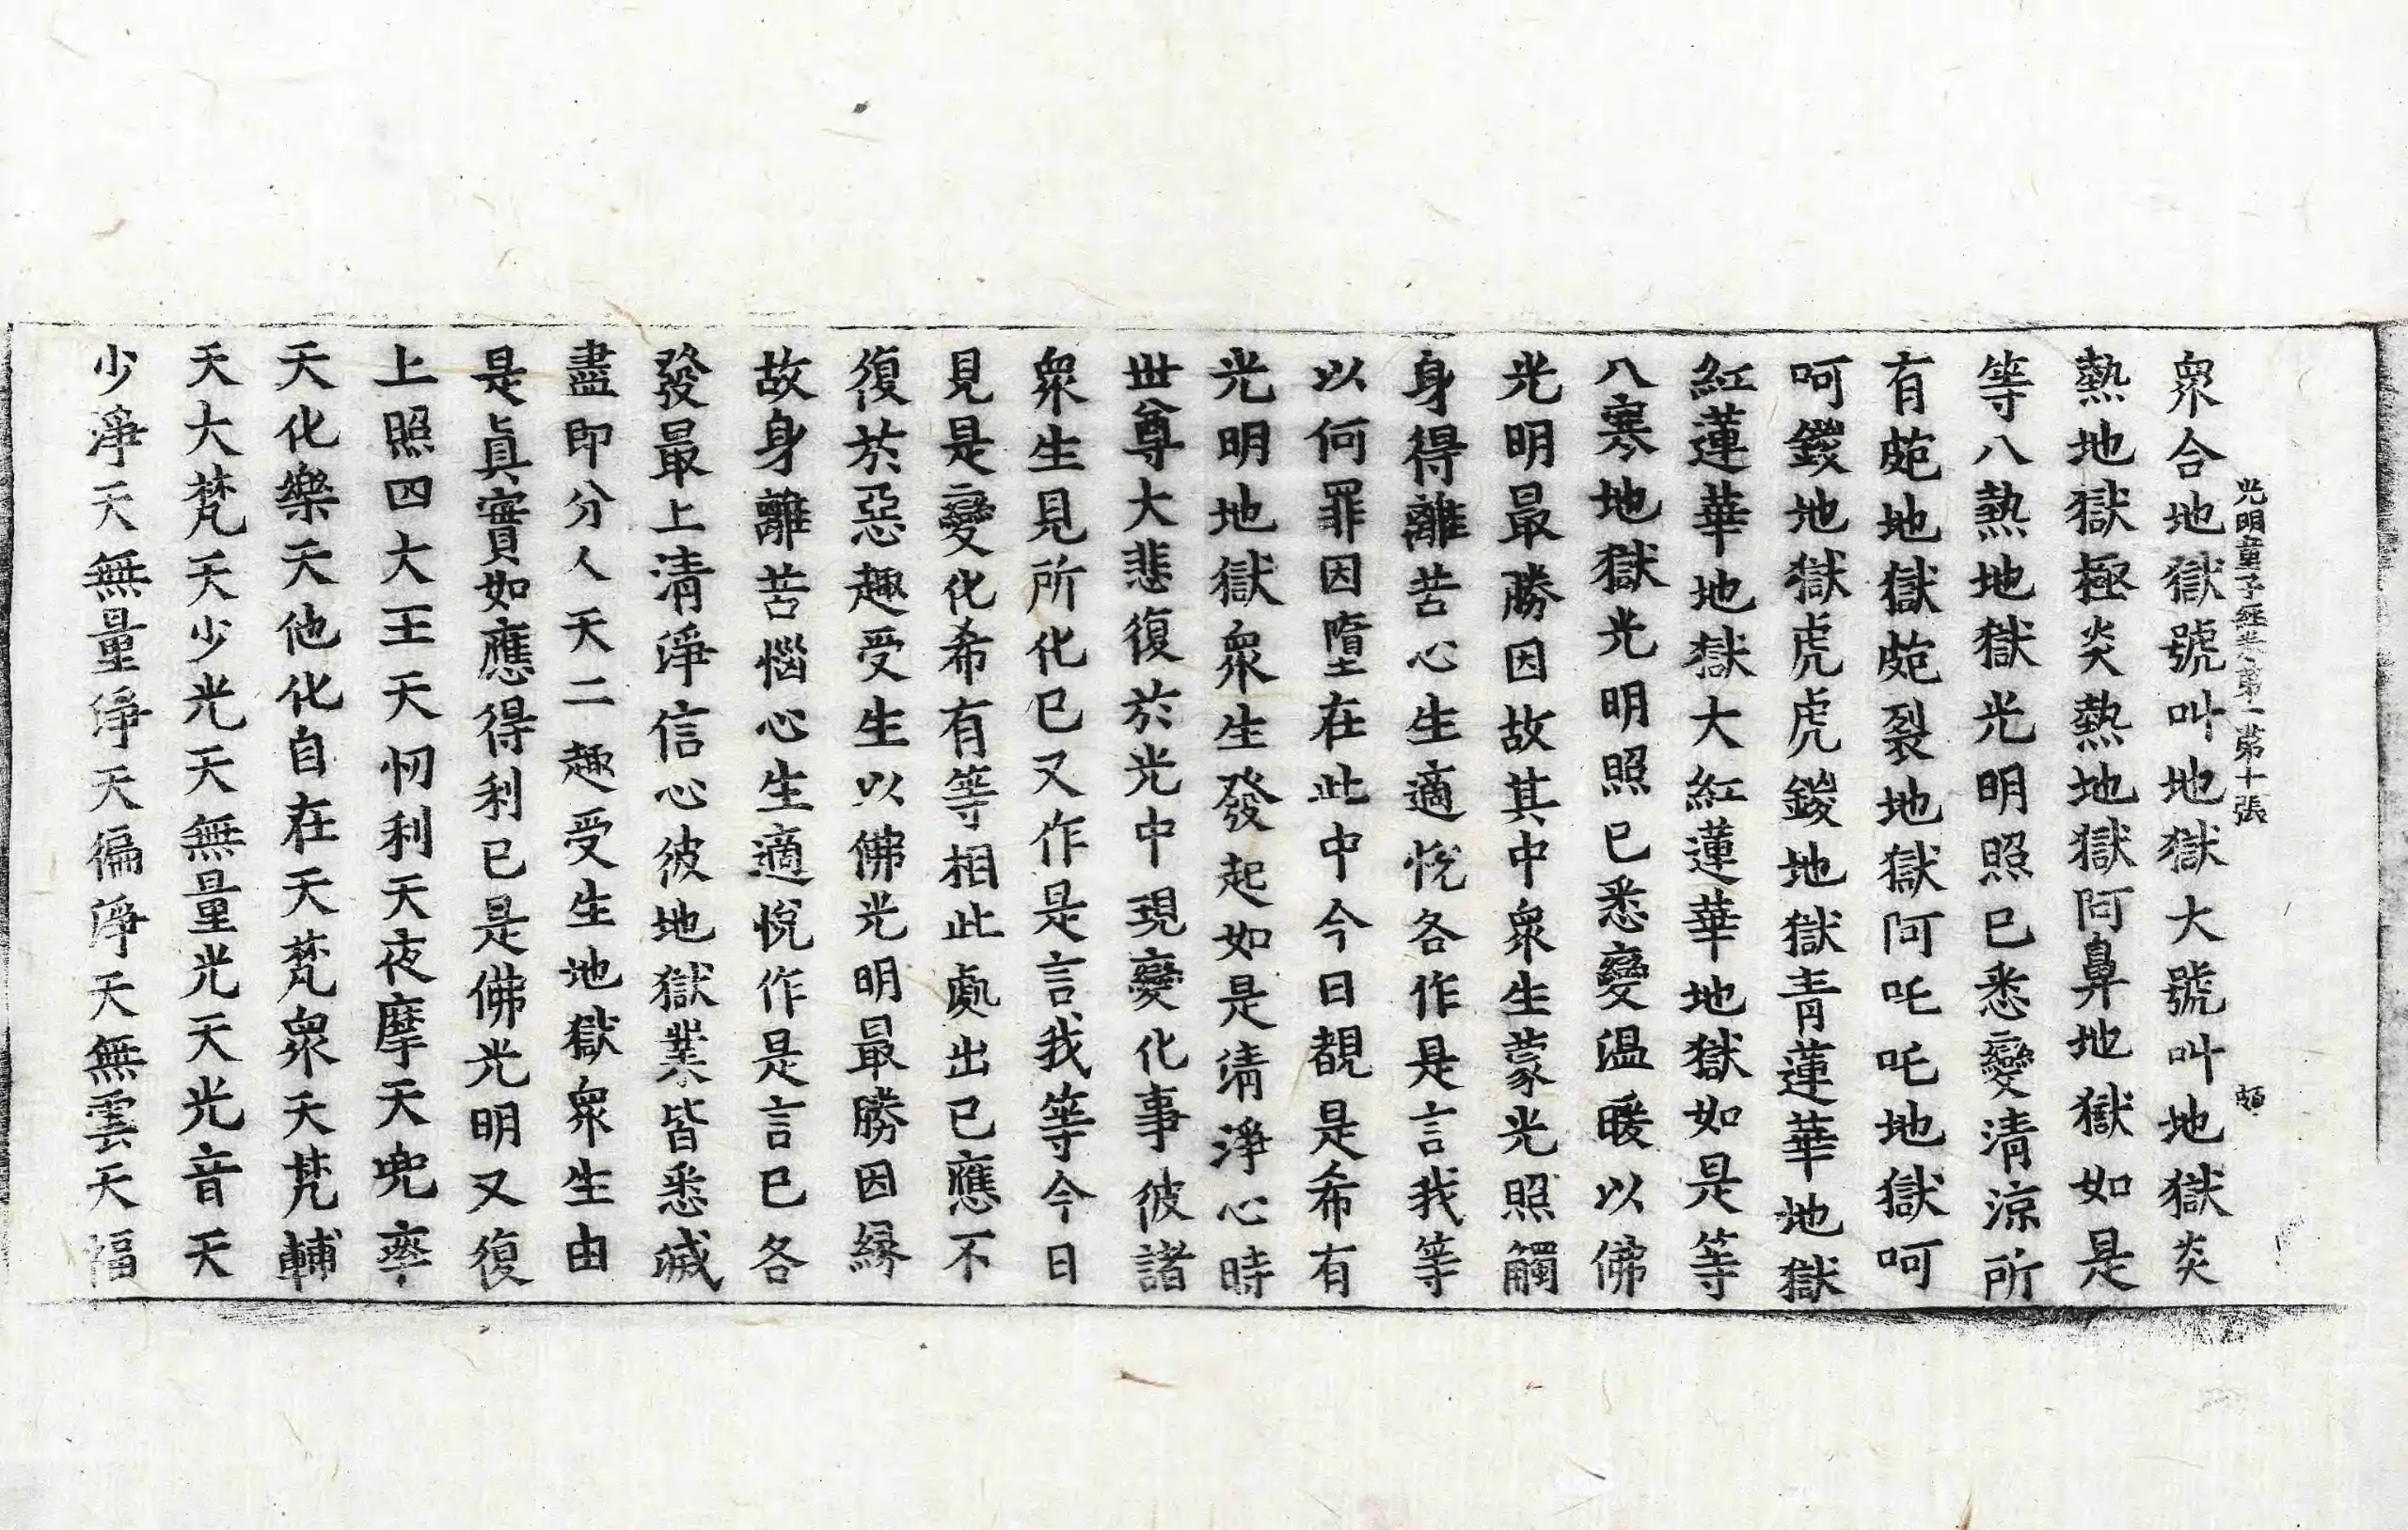 光明童子經卷第一 第十張 頔
衆合地獄號叫地獄大號叫地獄炎
熱地獄極炎熱地獄阿鼻地獄如是
等八熱地獄光明照已悉變清涼所
有皰地獄皰裂地獄阿吒吒地獄呵
呵鍐地獄虎虎鍐地獄青蓮華地獄
紅蓮華地獄大紅蓮華地獄如是等
八寒地獄光明照已悉變温暖以佛
光明最勝因故其中衆生蒙光照觸
身得離苦心生適悅各作是言我等
以何罪因墮在此中今日覩是希有
光明地獄衆生發起如是清淨心時
世尊大悲復於光中現變化事彼諸
衆生見所化已又作是言我等今日
見是變化希有等相此處出已應不
復於惡趣受生以佛光明最勝因緣
故身離苦惱心生適悅作是言已各
發最上清淨信心彼地獄業皆悉滅
盡即分人天二趣受生地獄衆生由
是眞實如應得利已是佛光明又復
上照四大王天忉利天夜摩天兜率
天化樂天他化自在天梵衆天梵輔
天大梵天少光天無量光天光音天
少淨天無量淨天徧淨天無雲天福